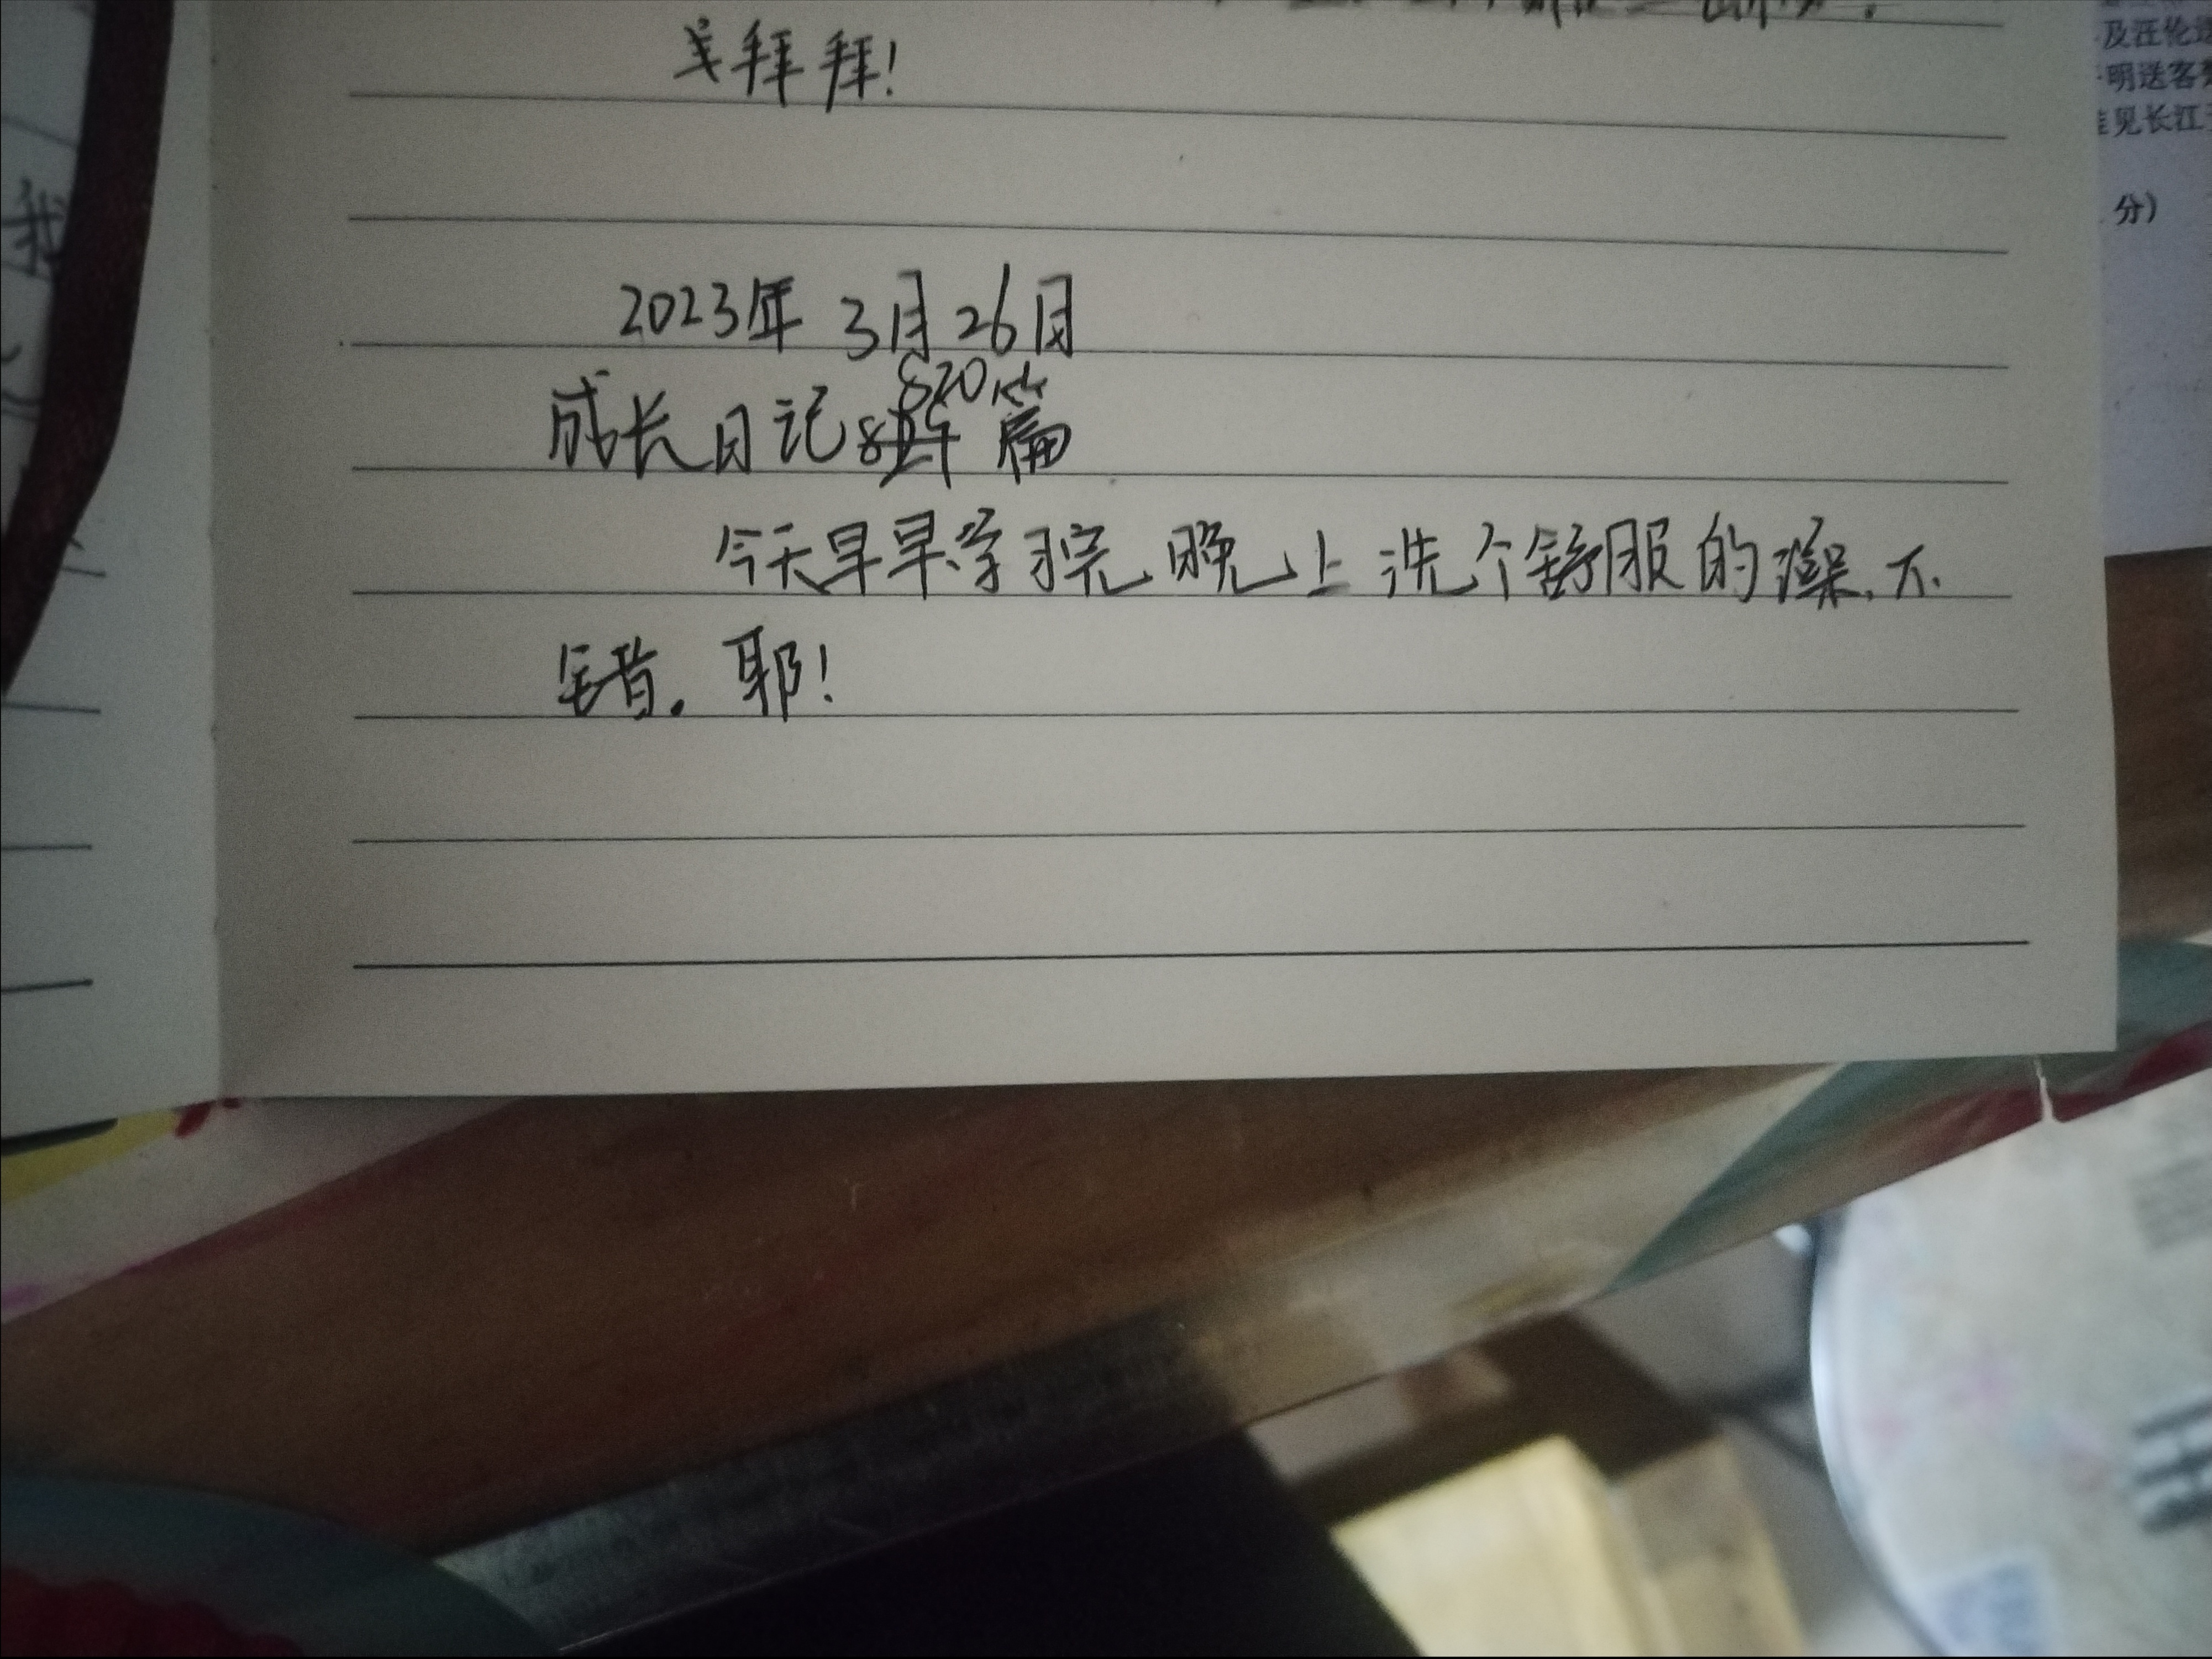 拜拜!
2023年 3月26日
成长日记820篇
今天早早学习完 晚上洗个舒服的澡,不
错. 耶!
我
明送客
见长江
分)